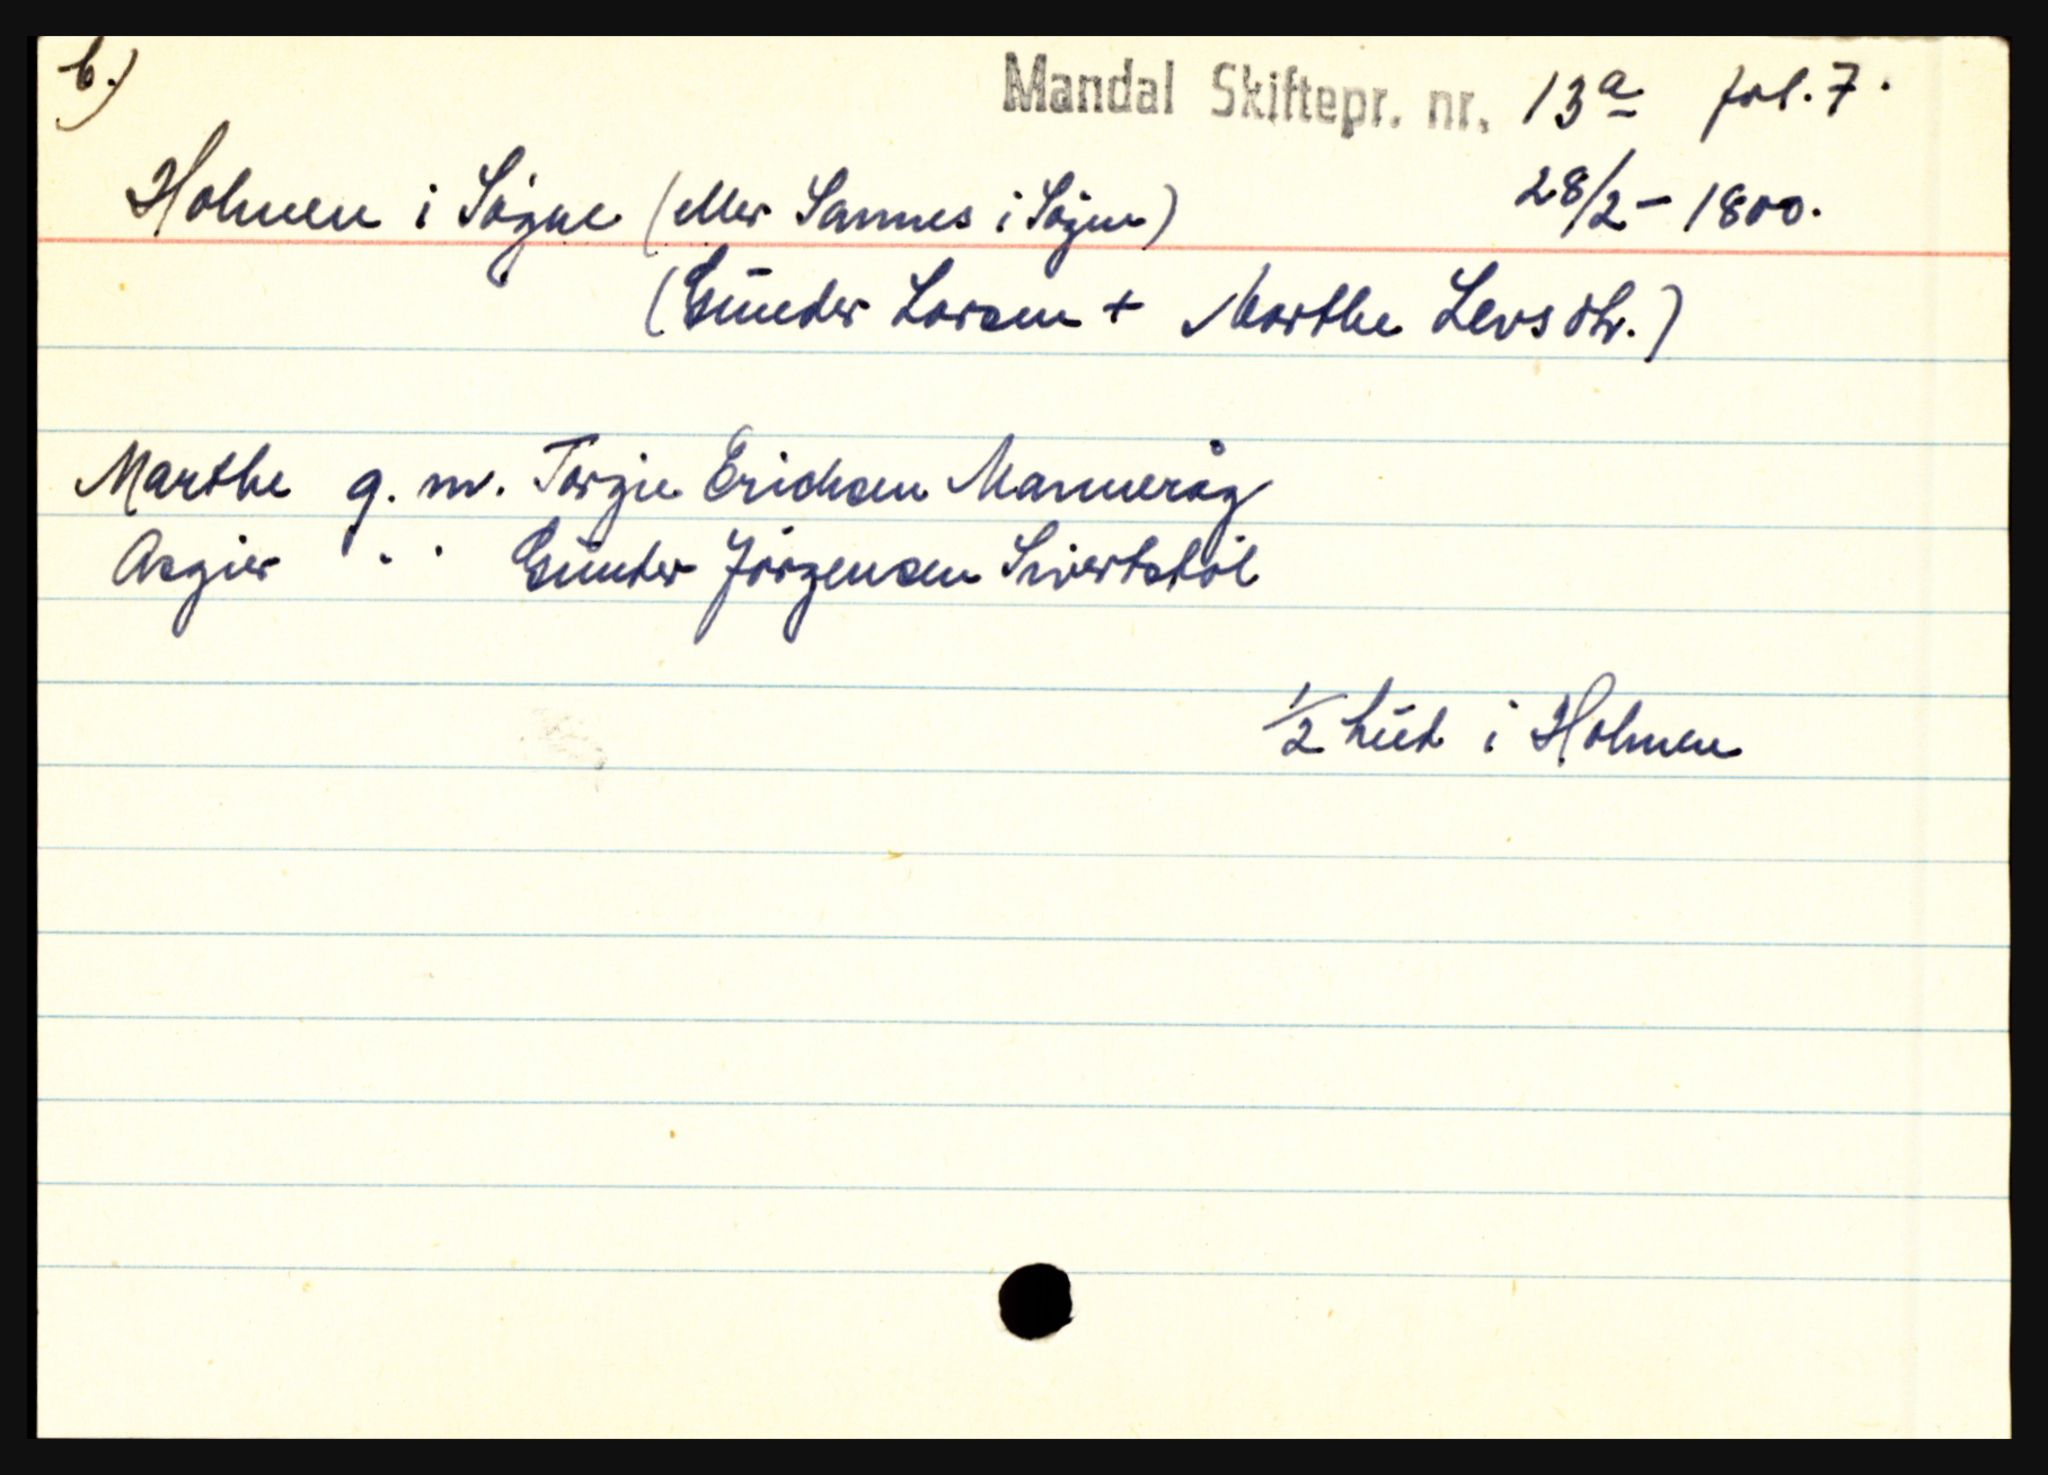 b.)
Mandal Skiftepr. nr. 13a fol. 7.
Holmen i Søgne (eller Sannes i Søgne) 28/2 - 1800.
(Gunder Larsen + Marthe Levsdtr.)
Marthe g. m. Torgie Erichsen Manneråg
Asgier " " Gunder Jørgensen Sivertstøl
1/2 hud i Holmen